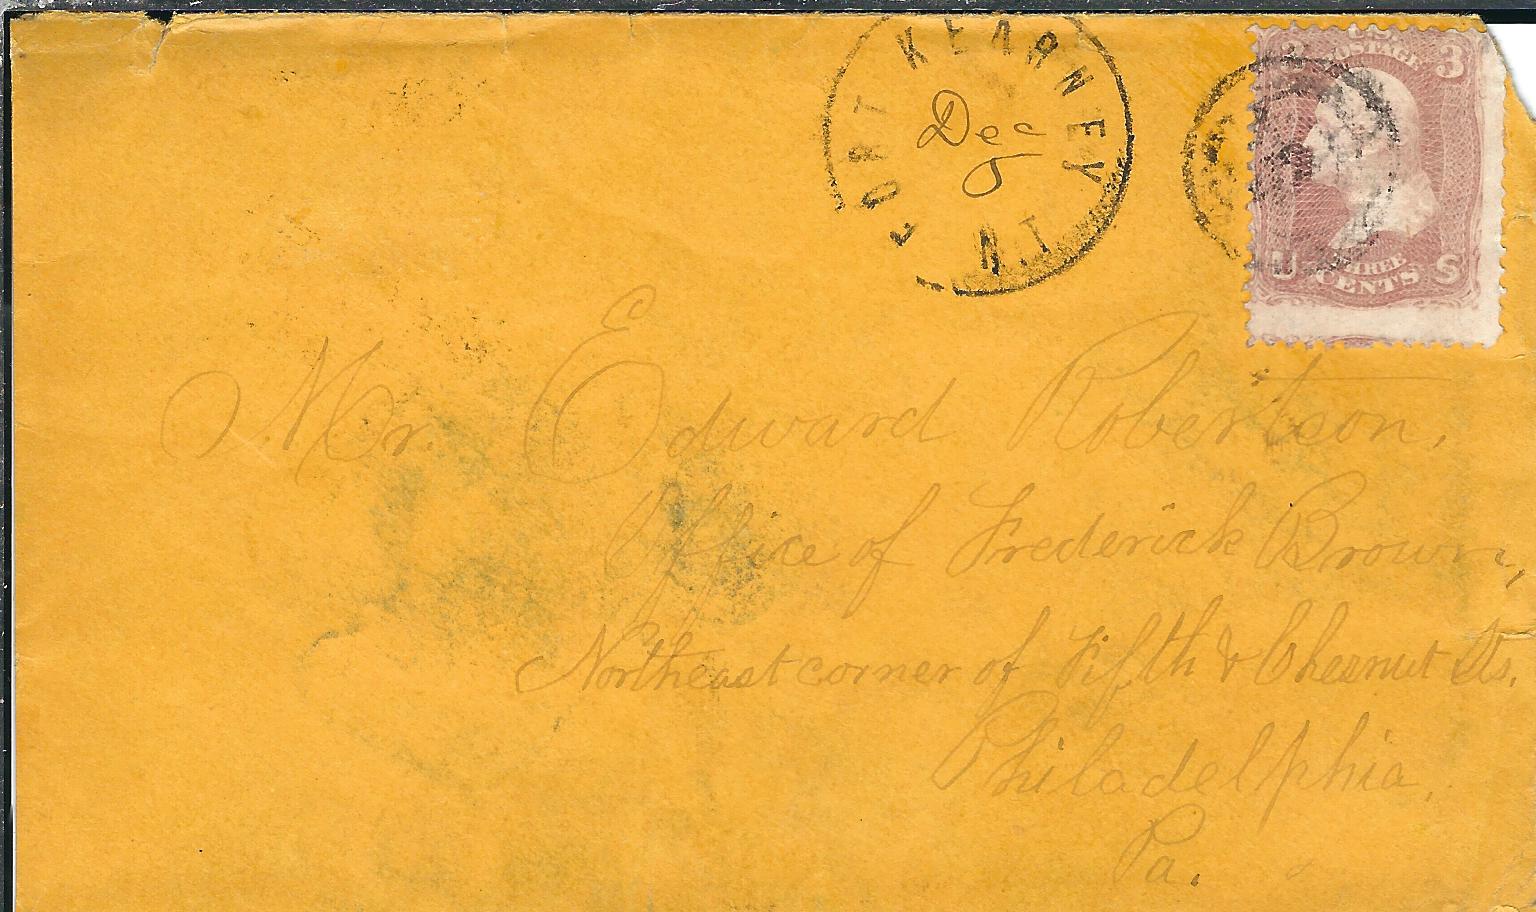 FORT KEARNEY
N.T.
Dec
5
U.S. POSTAGE
3 3
U THREE S
CENTS
Mr. Edward Robertson,
Office of Frederick Brown,
Northeast corner of Fifth & Chesnut Sts.
Philadelphia,
Pa.